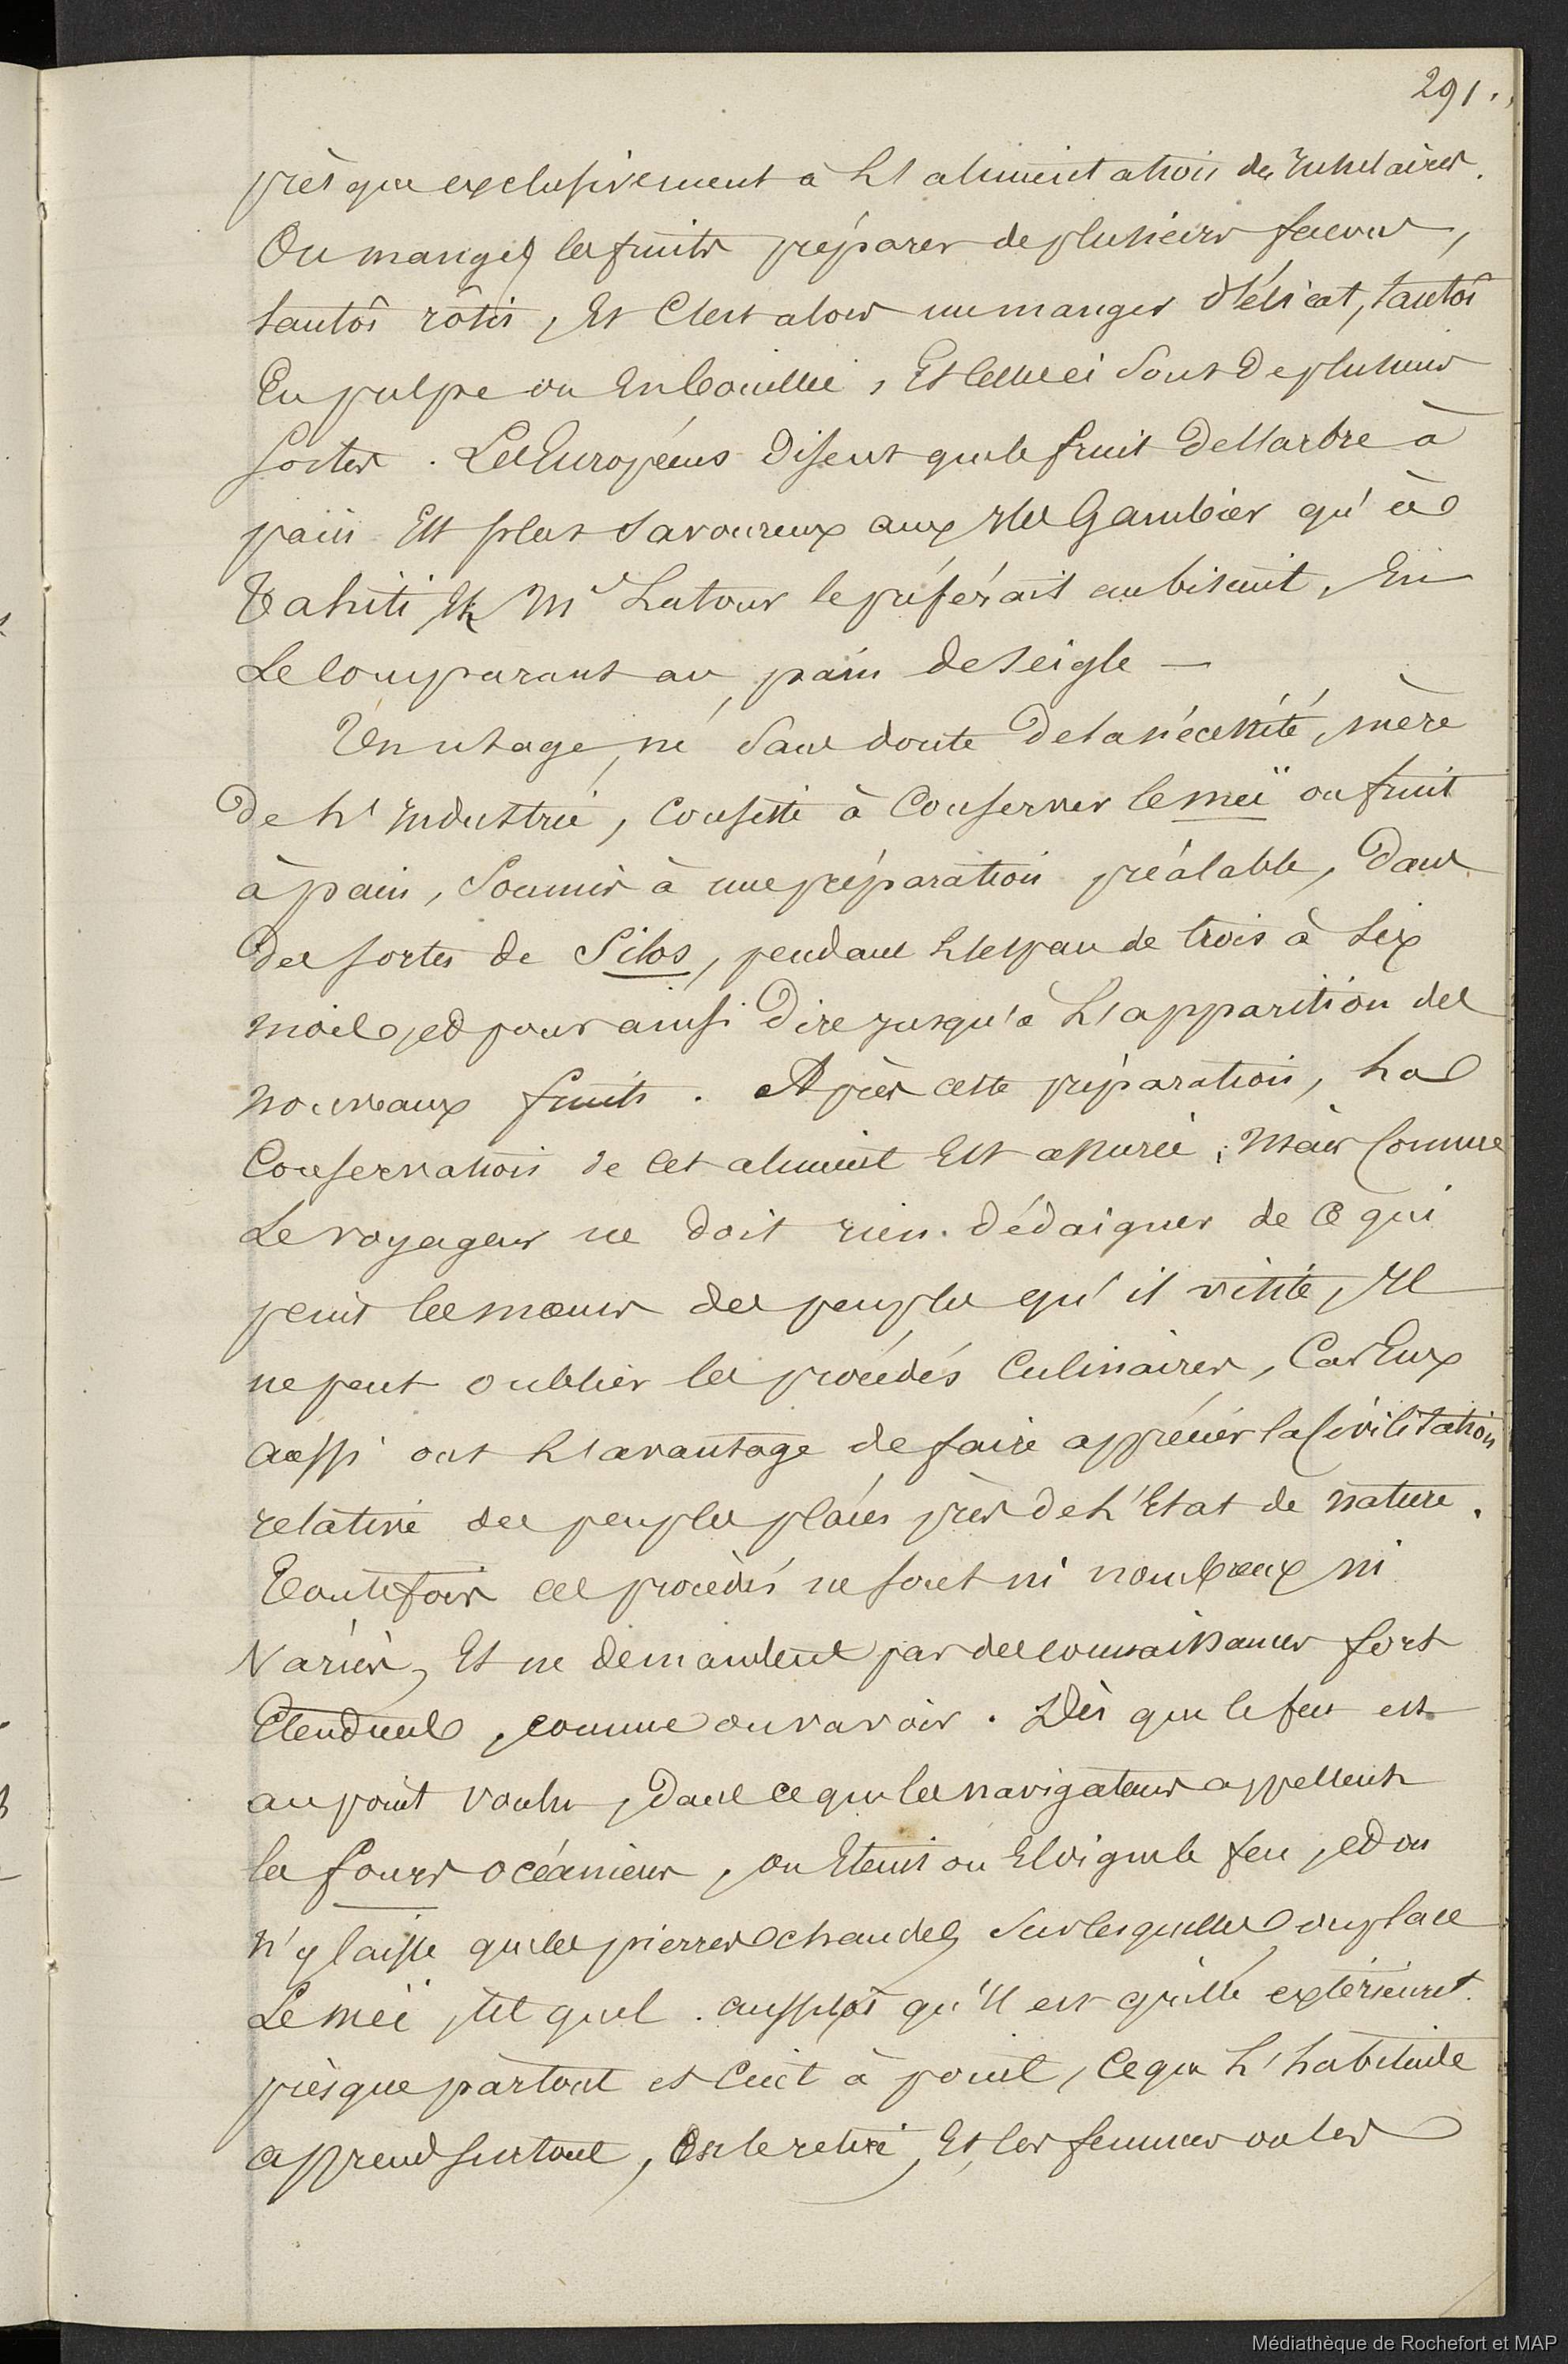 291.
presque exclusivement à l'alimentation des Insulaires.
On mange les fruits préparés de plusieurs façons,
tantôt rôtis, et c'est alors un manger délicat, tantôt
en pulpe ou en bouillie, et celles ci sont de plusieurs
sortes. Les Européens disent que le fruit de l'arbre à
pain est plus savoureux aux Iles Gambier qu'à
Tahiti et Mr Latour le préférait au biscuit, en
le comparant au pain de seigle —
Un usage, né sans doute de la nécessité, mère
de l'industrie, consiste à conserver le meï ou fruit
à pain, soumis à une préparation préalable, dans
des sortes de silos, pendant l'espace de trois à six
mois, et pour ainsi dire jusqu'à l'apparition des
nouveaux fruits. Après cette préparation, la
conservation de cet aliment est assurée ; mais comme
le voyageur ne doit rien dédaigner de ce qui
peint les mœurs des peuples qu'il visite, il
ne peut oublier les procédés culinaires, car eux
aussi ont l'avantage de faire apprécier la civilisation
relative des peuples placés près de l'Etat de nature.
Toutefois ces procédés ne sont ni nombreux ni
variés, et ne demandent pas des connaissances fort
étendues, comme on va voir. Dès que le feu est
au point voulu, dans ce que les navigateurs appellent
les fours océaniens, on éteint ou éloigne le feu, et on
n'y laisse que les pierres chaudes sur lesquelles on place
le meï, tel quel. aussitôt qu'il est grillé extérieurt.
presque partout et cuit à point, ce que l'habitude
apprend surtout, on le retire, et les femmes ou les
Médiathèque de Rochefort et MAP